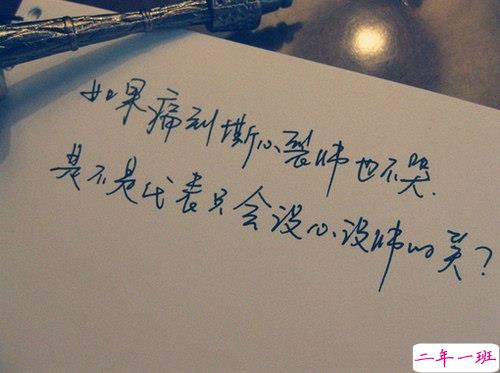 如果痛到撕心裂肺也不哭.
是不是代表只会没心没肺的笑?
二年一班